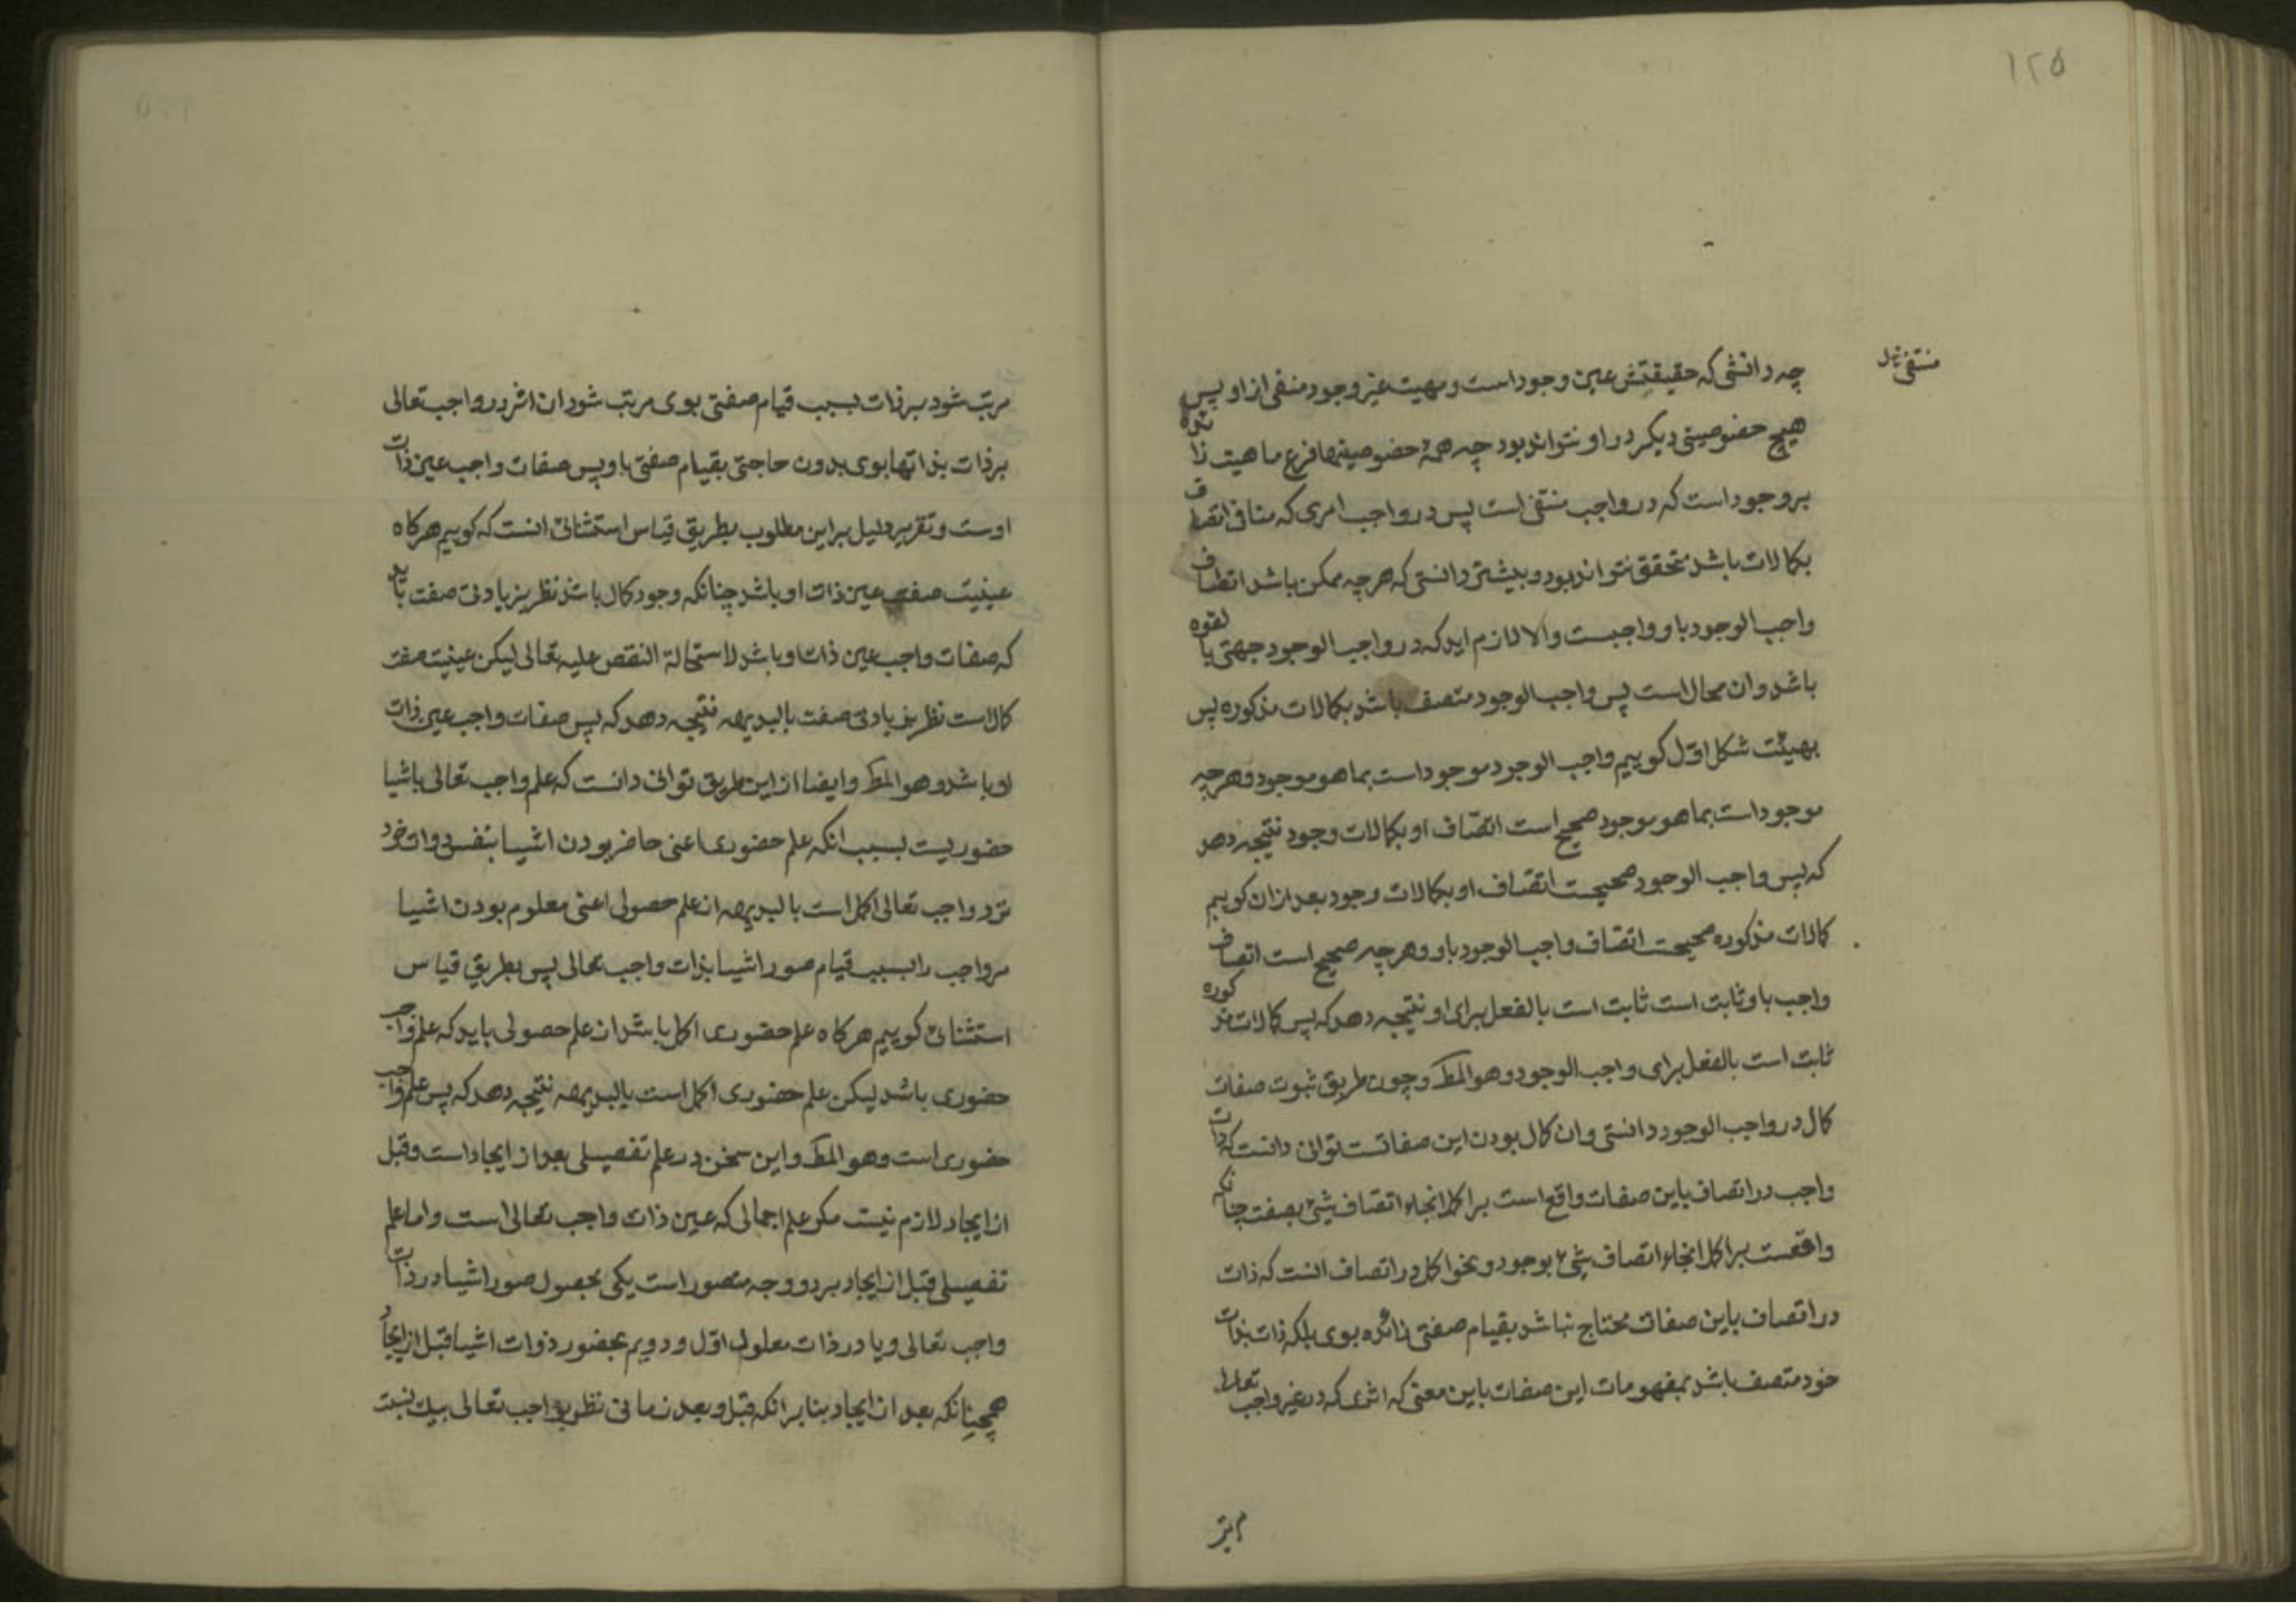 ۱۲۵
منتفی بدل
چه دانشی که حقیقتش عین وجود است و مهیت غیر وجود منفی از او پس
هیچ خصوصیتی دیکر در او نتواند بود چه همهٔ خصوصیتها فرع ماهیت زائده
بر وجود است که در واجب منتفی است پس در واجب امری که منافی اتصاف
بکمالات باشد متحقق نتواند بود و بیشتر دانستی که هر چه ممکن باشد اتصاف
واجب الوجود باو واجبست و الا لازم اید که در واجب الوجود جهتی بالقوه
باشد و ان محال است پس واجب الوجود متصف باشد بکمالات مذکوره پس
بهیئت شکل اوّل کوییم واجب الوجود موجود است بما هو موجود و هر چه
موجود است بما هو موجود صحیح است اتصاف او بکمالات وجود نتیجه دهد
که پس واجب الوجود صحیحست اتصاف او بکمالات وجود بعد از ان کوییم
کمالات مذکوره صحیحست اتصاف واجب الوجود باو و هر چه صحیح است اتصاف
واجب باو ثابت است ثابت است بالفعل برای او نتیجه دهد که پس کمالات مذکوره
ثابت است بالفعل برای واجب الوجود و هو المط و چون طریق ثبوت صفات
کمال در واجب الوجود دانستی و ان کمال بودن این صفاتست توانی دانست که ذات
واجب در اتصاف باین صفات واقع است بر اکمل انحاء اتصاف شیئ بصفت چنانکه
واقعست بر اکمل انحاء اتصاف شیء بوجود و نحو اکمل در اتصاف انست که ذات
در اتصاف باین صفات محتاج نباشد بقیام صفتی زائده بوی بلکه ذات بذات
خود متصف باشد بمفهومات این صفات باین معنی که اثری که در غیر واجب تعالی
مرتب شود بر ذات بسبب قیام صفتی بوی مرتب شود ان اثر در واجب تعالی
بر ذات بذاتها بوی بدون حاجتی بقیام صفتی باو پس صفات واجب عین ذات
اوست و تقریر دلیل بر این مطلوب بطریق قیاس استثنائی انست که کوییم هرکاه
عینیت صفت عین ذات او باشد چنانکه وجود کمال باشد نظر بزیادتی صفت باید
که صفات واجب عین ذات او باشد لاستحالة النقص علیه تعالی لیکن عینیت صفت
کمال است نظر بزیادتی صفت بالبدیهه نتیجه دهد که پس صفات واجب عین ذات
او باشد و هو المط و ایضا از این طریق توانی دانست که علم واجب تعالی باشیا
حضوریست بسبب انکه علم حضوری اعنی حاضر بودن اشیا بنفس ذوات خود
نزد واجب تعالی اکمل است بالبدیهه از علم حصولی اعنی معلوم بودن اشیا
مر واجب را بسبب قیام صور اشیا بذات واجب تعالی پس بطریق قیاس
استثنائی کوییم هرکاه علم حضوری اکمل باشد از علم حصولی باید که علم واجب
حضوری باشد لیکن علم حضوری اکمل است بالبدیهه نتیجه دهد که پس علم واجب
حضوری است و هو المط و این سخن در علم تفصیلی بعد از ایجاد است و قبل
از ایجاد لازم نیست مکر علم اجمالی که عین ذات واجب تعالی است و اما علم
تفصیلی قبل از ایجاد بر دو وجه متصور است یکی بحصول صور اشیا در ذات
واجب تعالی و یا در ذات معلول اوّل و دویم بحضور ذوات اشیا قبل از ایجاد
همچنانکه بعد از ایجاد بنا بر انکه قبل و بعد زمانی نظر بواجب تعالی بیک نسبت